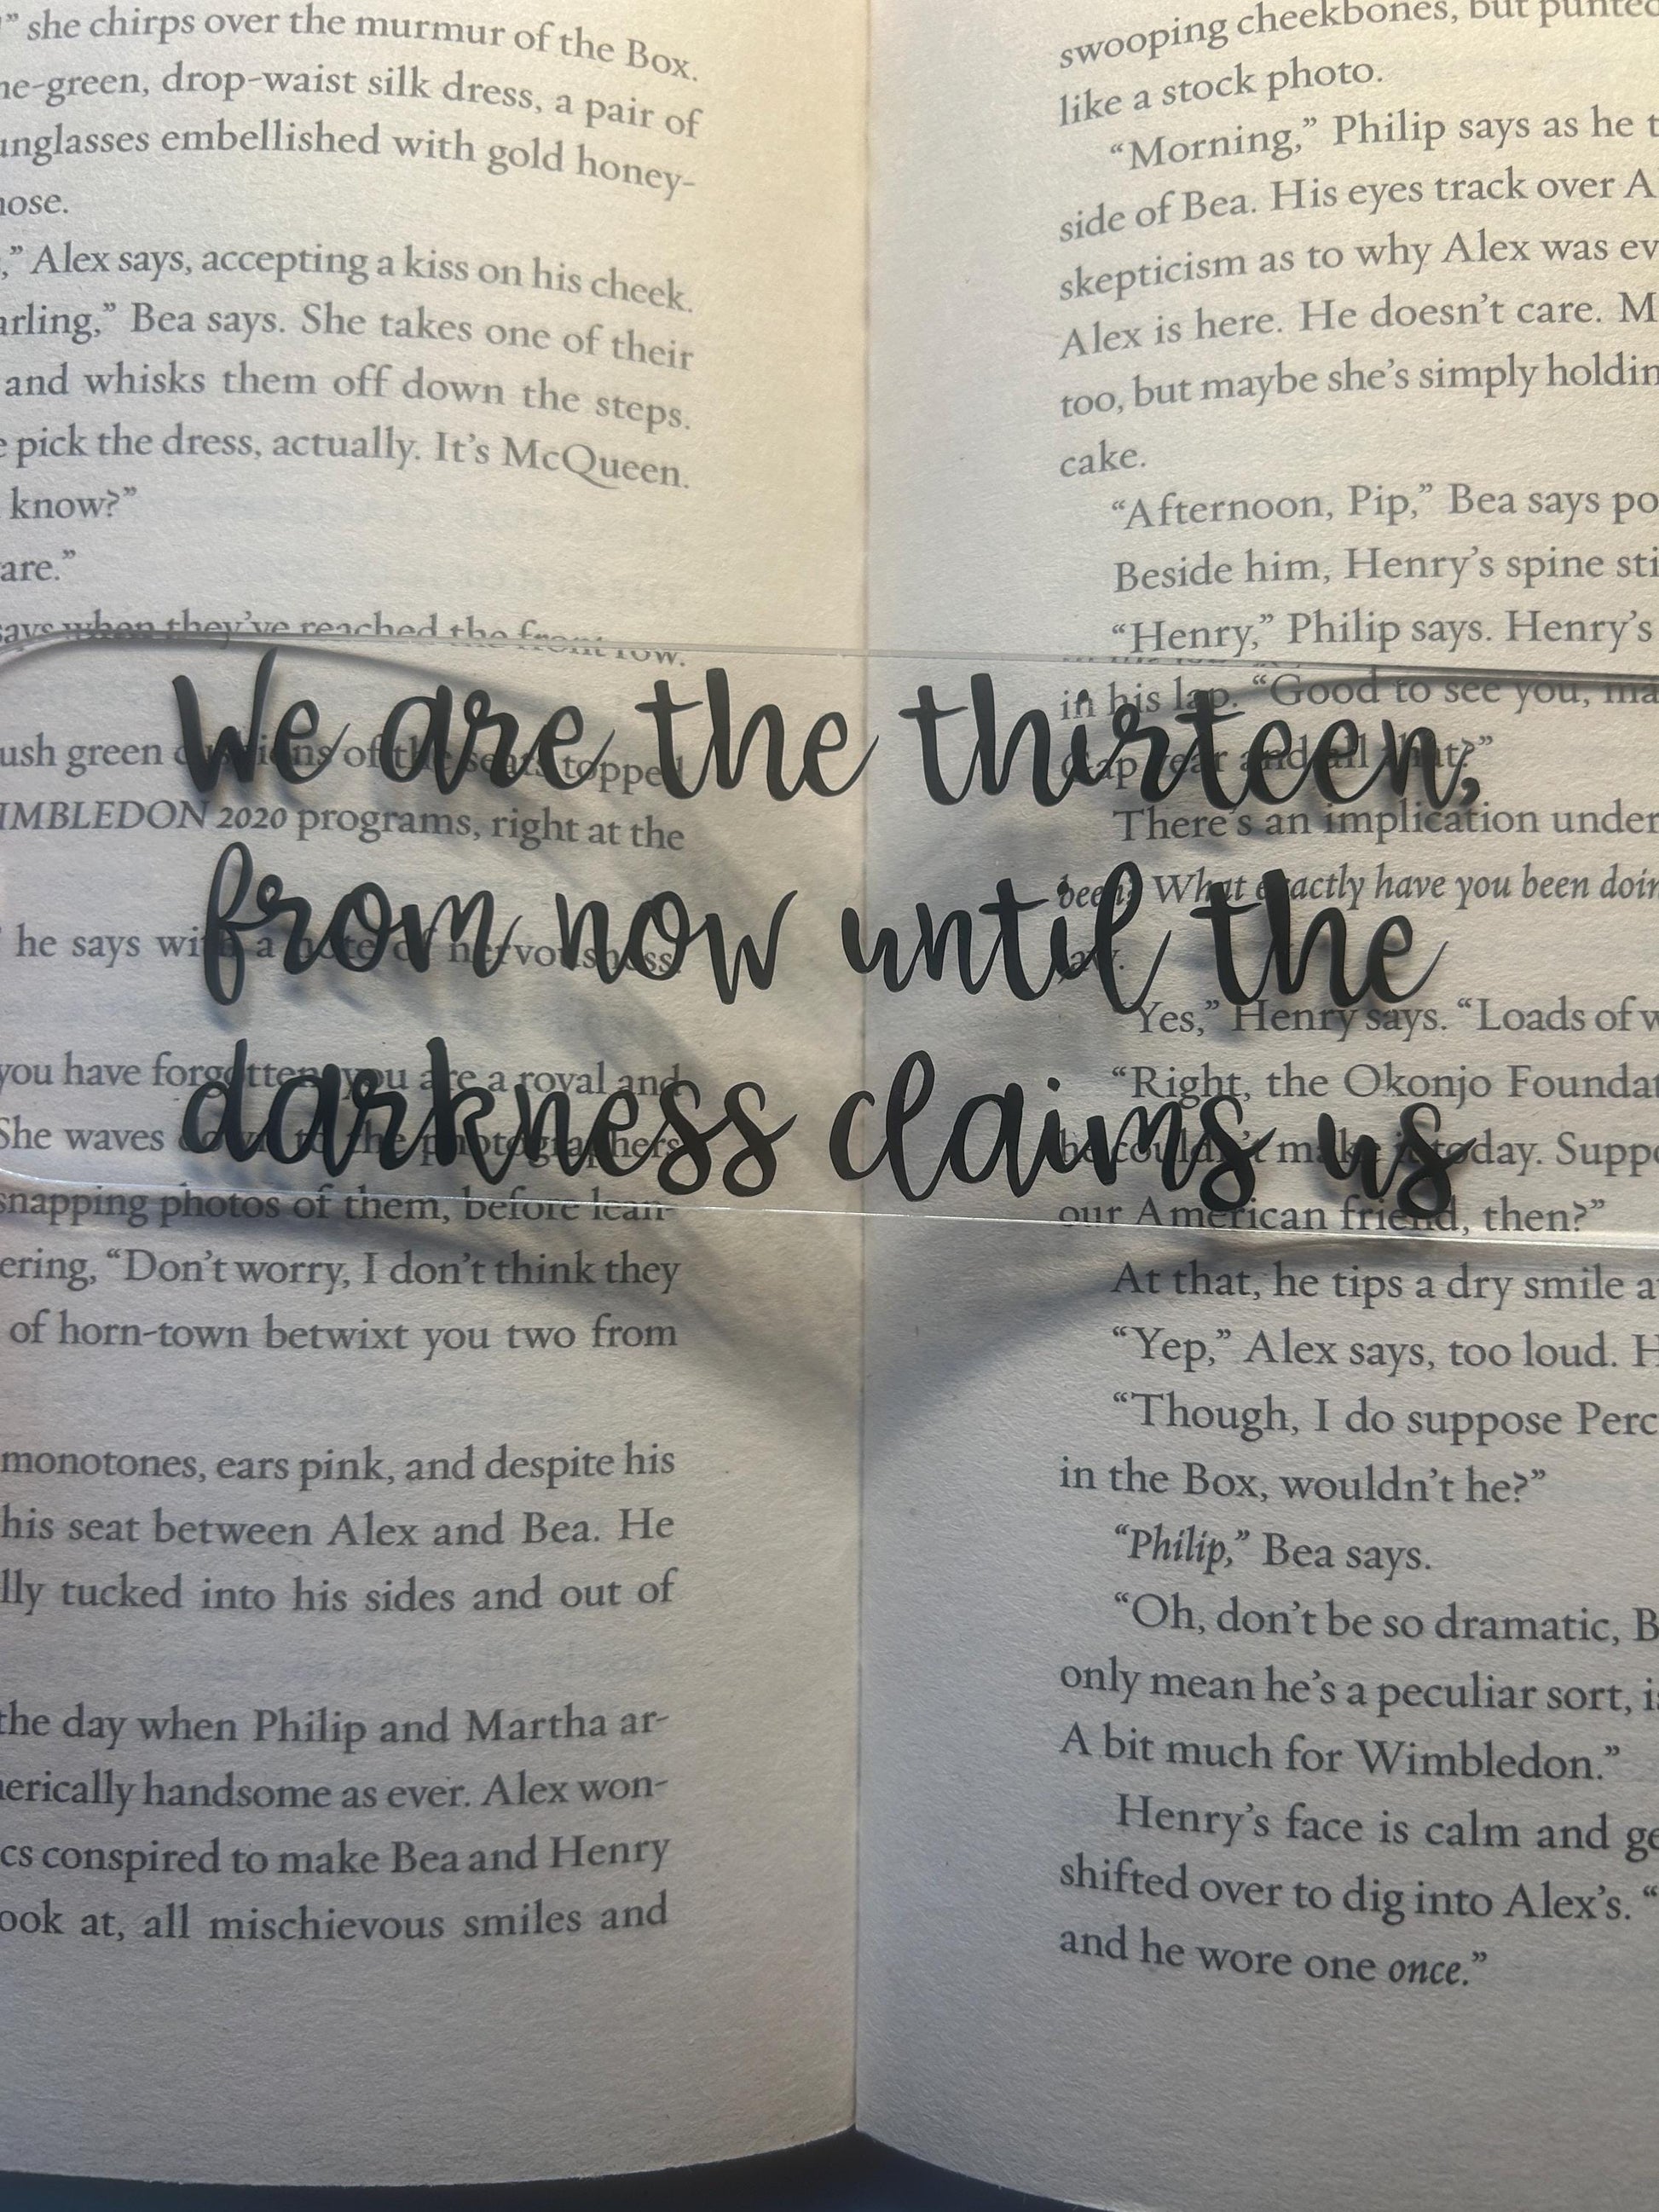 ” she chirps over the murmur of the Box.
ne-green, drop-waist silk dress, a pair of
unglasses embellished with gold honey-
nose.
,” Alex says, accepting a kiss on his cheek.
arling,” Bea says. She takes one of their
and whisks them off down the steps.
e pick the dress, actually. It’s McQueen.
know?”
are.”
says when they’ve reached the front row.
ush green cushions of the seats topped
IMBLEDON 2020 programs, right at the
he says with a note of nervousness.
you have forgotten, you are a royal and
She waves down to the photographers
snapping photos of them, before lean-
ering, “Don’t worry, I don’t think they
of horn-town betwixt you two from
monotones, ears pink, and despite his
his seat between Alex and Bea. He
lly tucked into his sides and out of
the day when Philip and Martha ar-
nerically handsome as ever. Alex won-
cs conspired to make Bea and Henry
ook at, all mischievous smiles and
We are the thirteen,
from now until the
darkness claims us
swooping cheekbones, but punted
like a stock photo.
“Morning,” Philip says as he t
side of Bea. His eyes track over A
skepticism as to why Alex was ev
Alex is here. He doesn’t care. M
too, but maybe she’s simply holdin
cake.
“Afternoon, Pip,” Bea says po
Beside him, Henry’s spine sti
“Henry,” Philip says. Henry’s
in his lap. “Good to see you, ma
Gap year and all that?”
There’s an implication under
been? What exactly have you been doin
jaw.
“Yes,” Henry says. “Loads of w
“Right, the Okonjo Foundat
he couldn’t make it today. Suppo
our American friend, then?”
At that, he tips a dry smile a
“Yep,” Alex says, too loud. H
“Though, I do suppose Perc
in the Box, wouldn’t he?”
“Philip,” Bea says.
“Oh, don’t be so dramatic, B
only mean he’s a peculiar sort, is
A bit much for Wimbledon.”
Henry’s face is calm and ge
shifted over to dig into Alex’s. “
and he wore one once.”